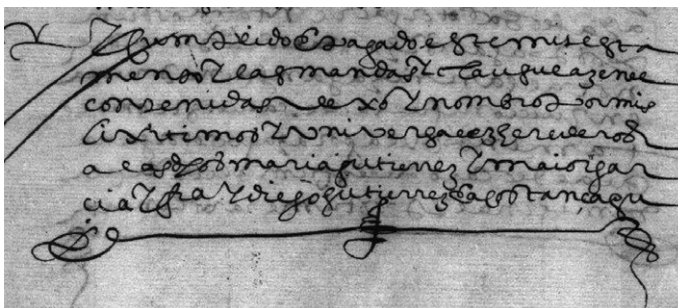 E cumplido e pagado este mi testa
mento y las mandas y clausulas en el
contenidas dexo y nombro por mis
lixitimos y universales herederos
a los dhos maria gutierrez y maior gar
cia y fra y diego gutierrez e a costança gu